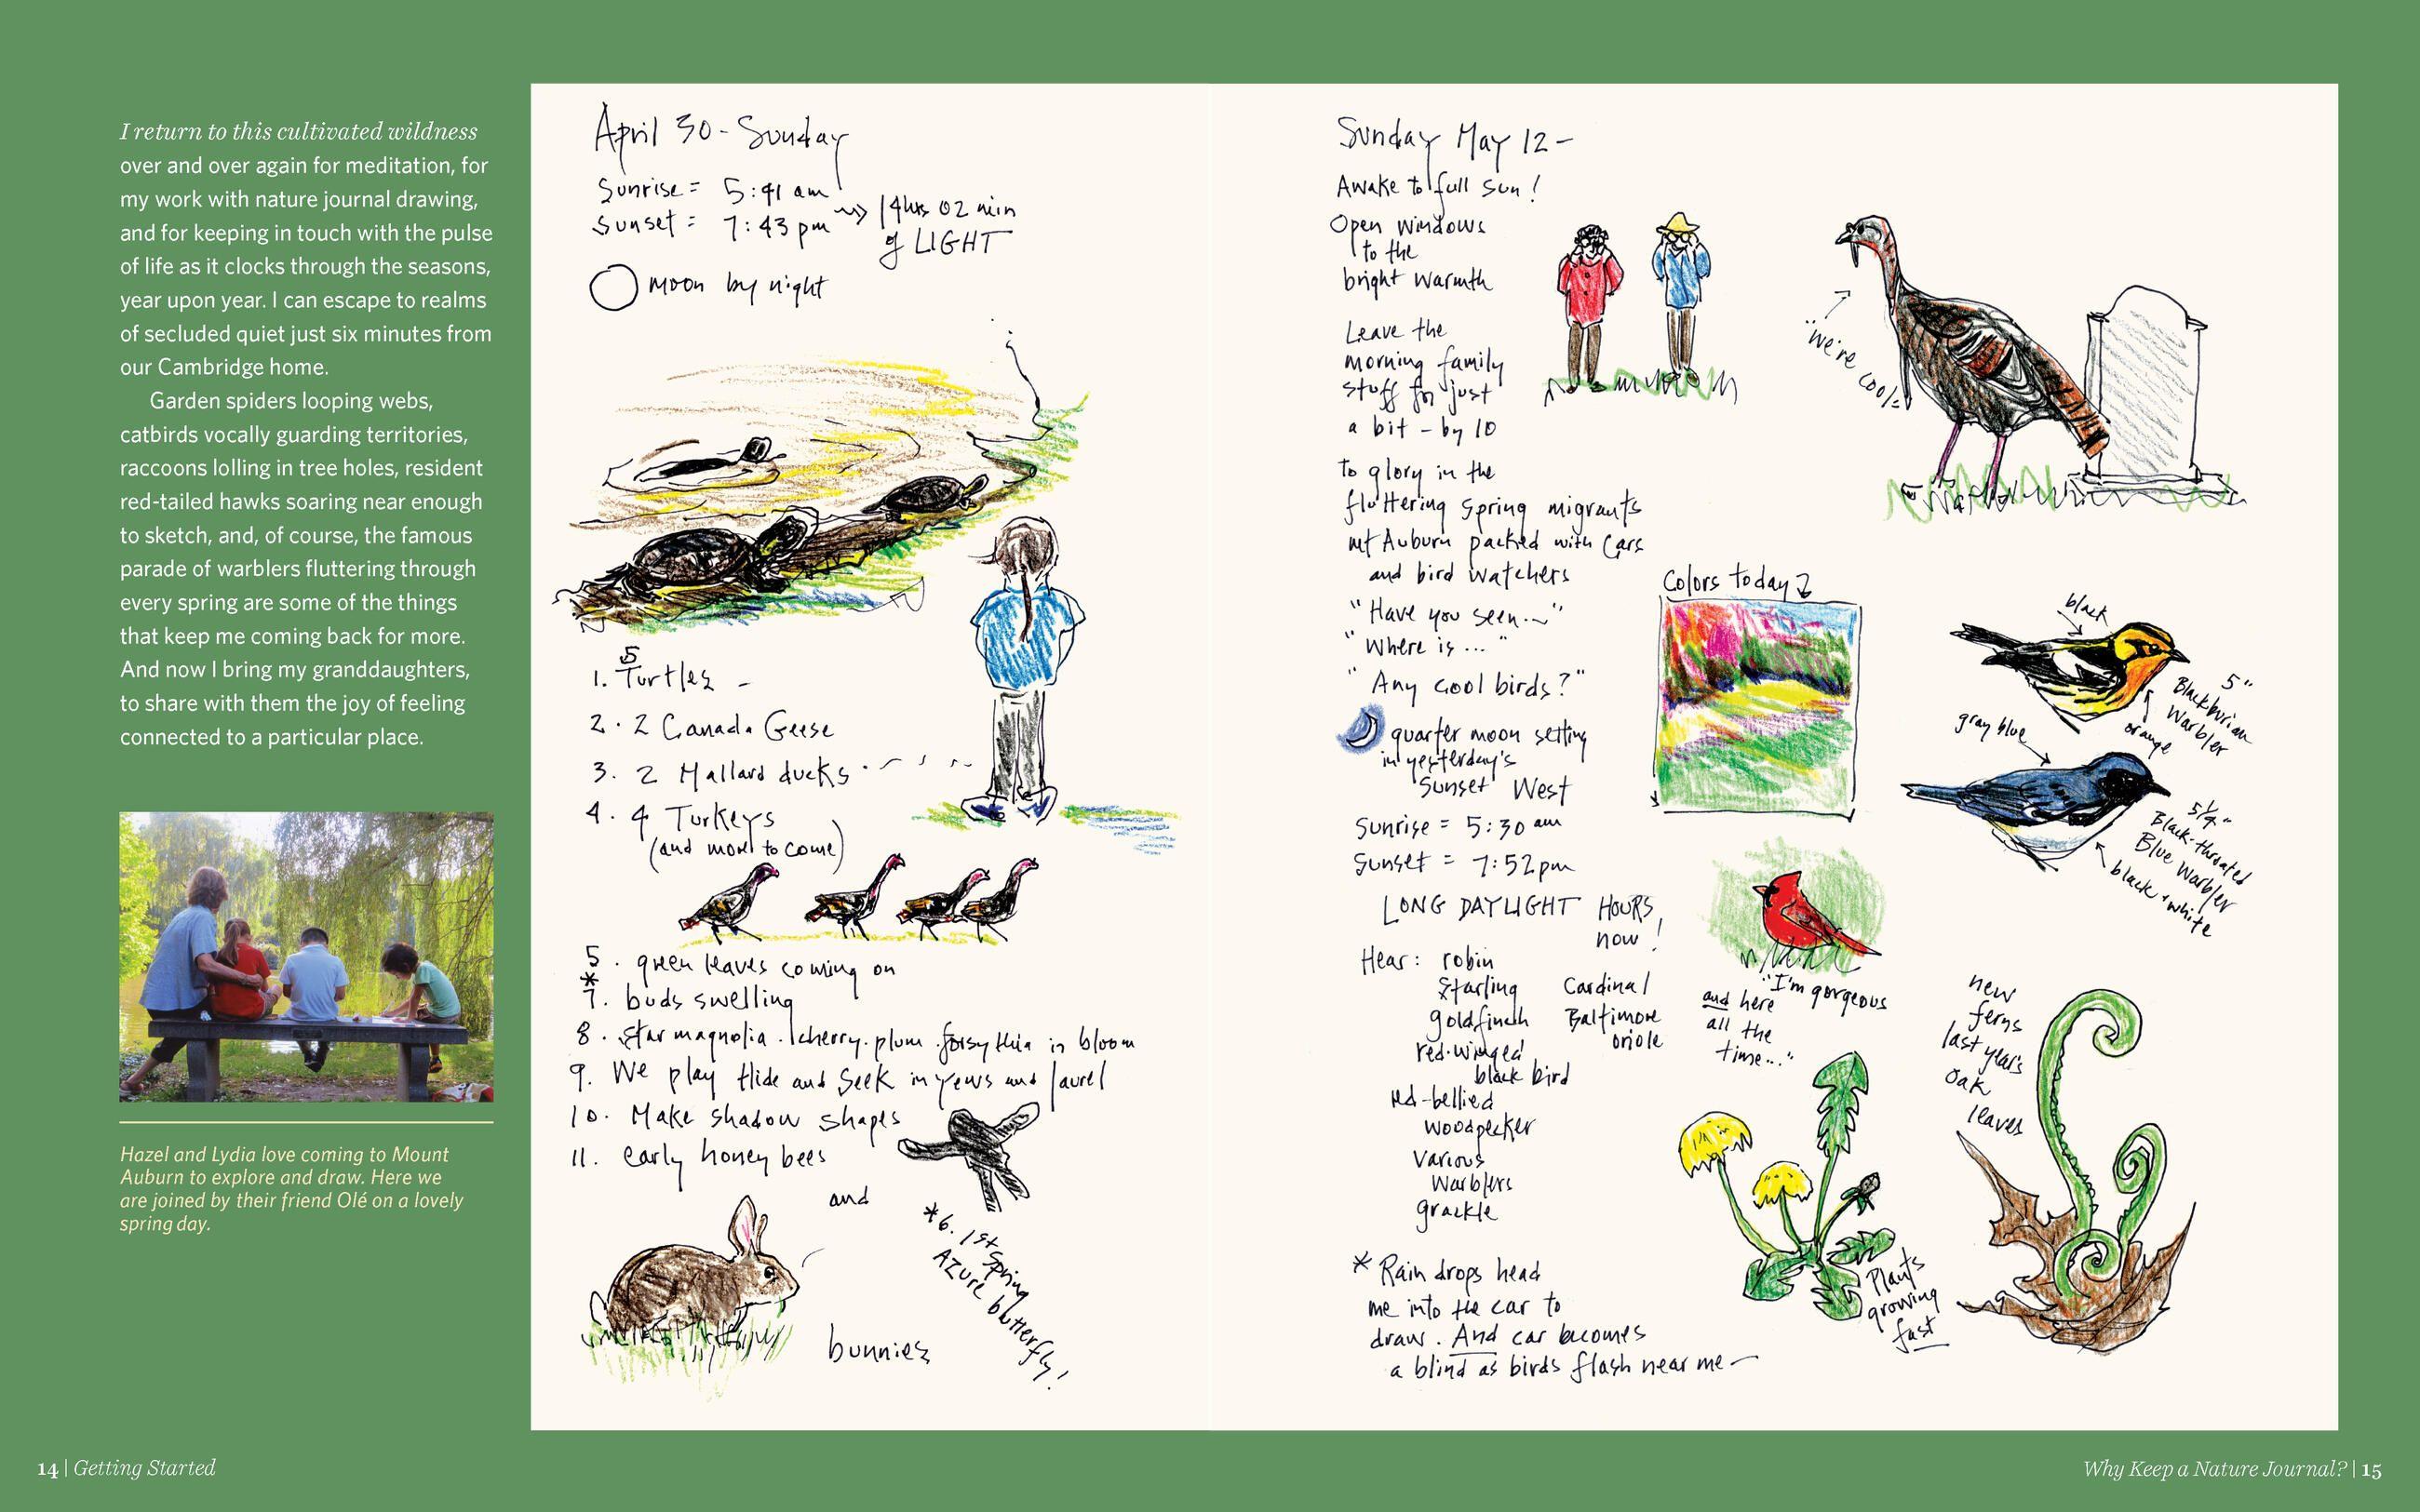 I return to this cultivated wildness
over and over again for meditation, for
my work with nature journal drawing,
and for keeping in touch with the pulse
of life as it clocks through the seasons,
year upon year. I can escape to realms
of secluded quiet just six minutes from
our Cambridge home.
Garden spiders looping webs,
catbirds vocally guarding territories,
raccoons lolling in tree holes, resident
red-tailed hawks soaring near enough
to sketch, and, of course, the famous
parade of warblers fluttering through
every spring are some of the things
that keep me coming back for more.
And now I bring my granddaughters,
to share with them the joy of feeling
connected to a particular place.
Hazel and Lydia love coming to Mount
Auburn to explore and draw. Here we
are joined by their friend Olé on a lovely
spring day.
14 | Getting Started
April 30 - Sunday
Sunrise = 5:41 am
Sunset = 7:43 pm
14 hrs 02 min
of LIGHT
moon by night
1. 5 Turtles -
2. 2 Canada Geese
3. 2 Mallard ducks
4. 4 Turkeys
(and more to come)
5. green leaves coming on
*
7. buds swelling
8. star magnolia. cherry. plum. forsythia in bloom
9. We play Hide and Seek in yews and laurel
10. Make shadow shapes
11. early honey bees
and
bunnies
*6. 1st Spring
AZure butterfly!
Sunday May 12 -
Awake to full sun!
Open windows
to the
bright warmth
Leave the
morning family
stuff for just
a bit - by 10
to glory in the
fluttering spring migrants
mt Auburn packed with cars
and bird watchers
"Have you seen..."
"Where is ..."
"Any cool birds?"
quarter moon setting
in yesterday's
Sunset West
Sunrise = 5:30 am
Sunset = 7:52 pm
LONG DAYLIGHT HOURS
now!
Hear: robin
Starling
goldfinch
red-winged
black bird
red-bellied
woodpecker
various
warblers
grackle
Cardinal
Baltimore
oriole
* Rain drops head
me into the car to
draw. And car becomes
a blind as birds flash near me -
"we're cool"
Colors today
black
5"
Blackburian
Warbler
orange
gray blue
5 1/4"
Black-throated
Blue Warbler
black + white
"I'm gorgeous
and here
all the
time..."
new
ferns
last year's
oak
leaves
Plants
growing
fast
Why Keep a Nature Journal? | 15